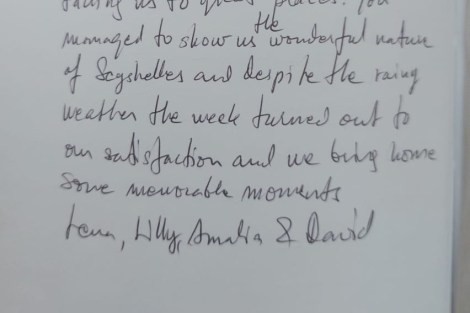 taking us to great places. You
managed to show us the wonderful nature
of Seyshelles and despite the rainy
weather the week turned out to
our satisfaction and we bring home
some memorable moments
Lena, Lilly, Amalia & David